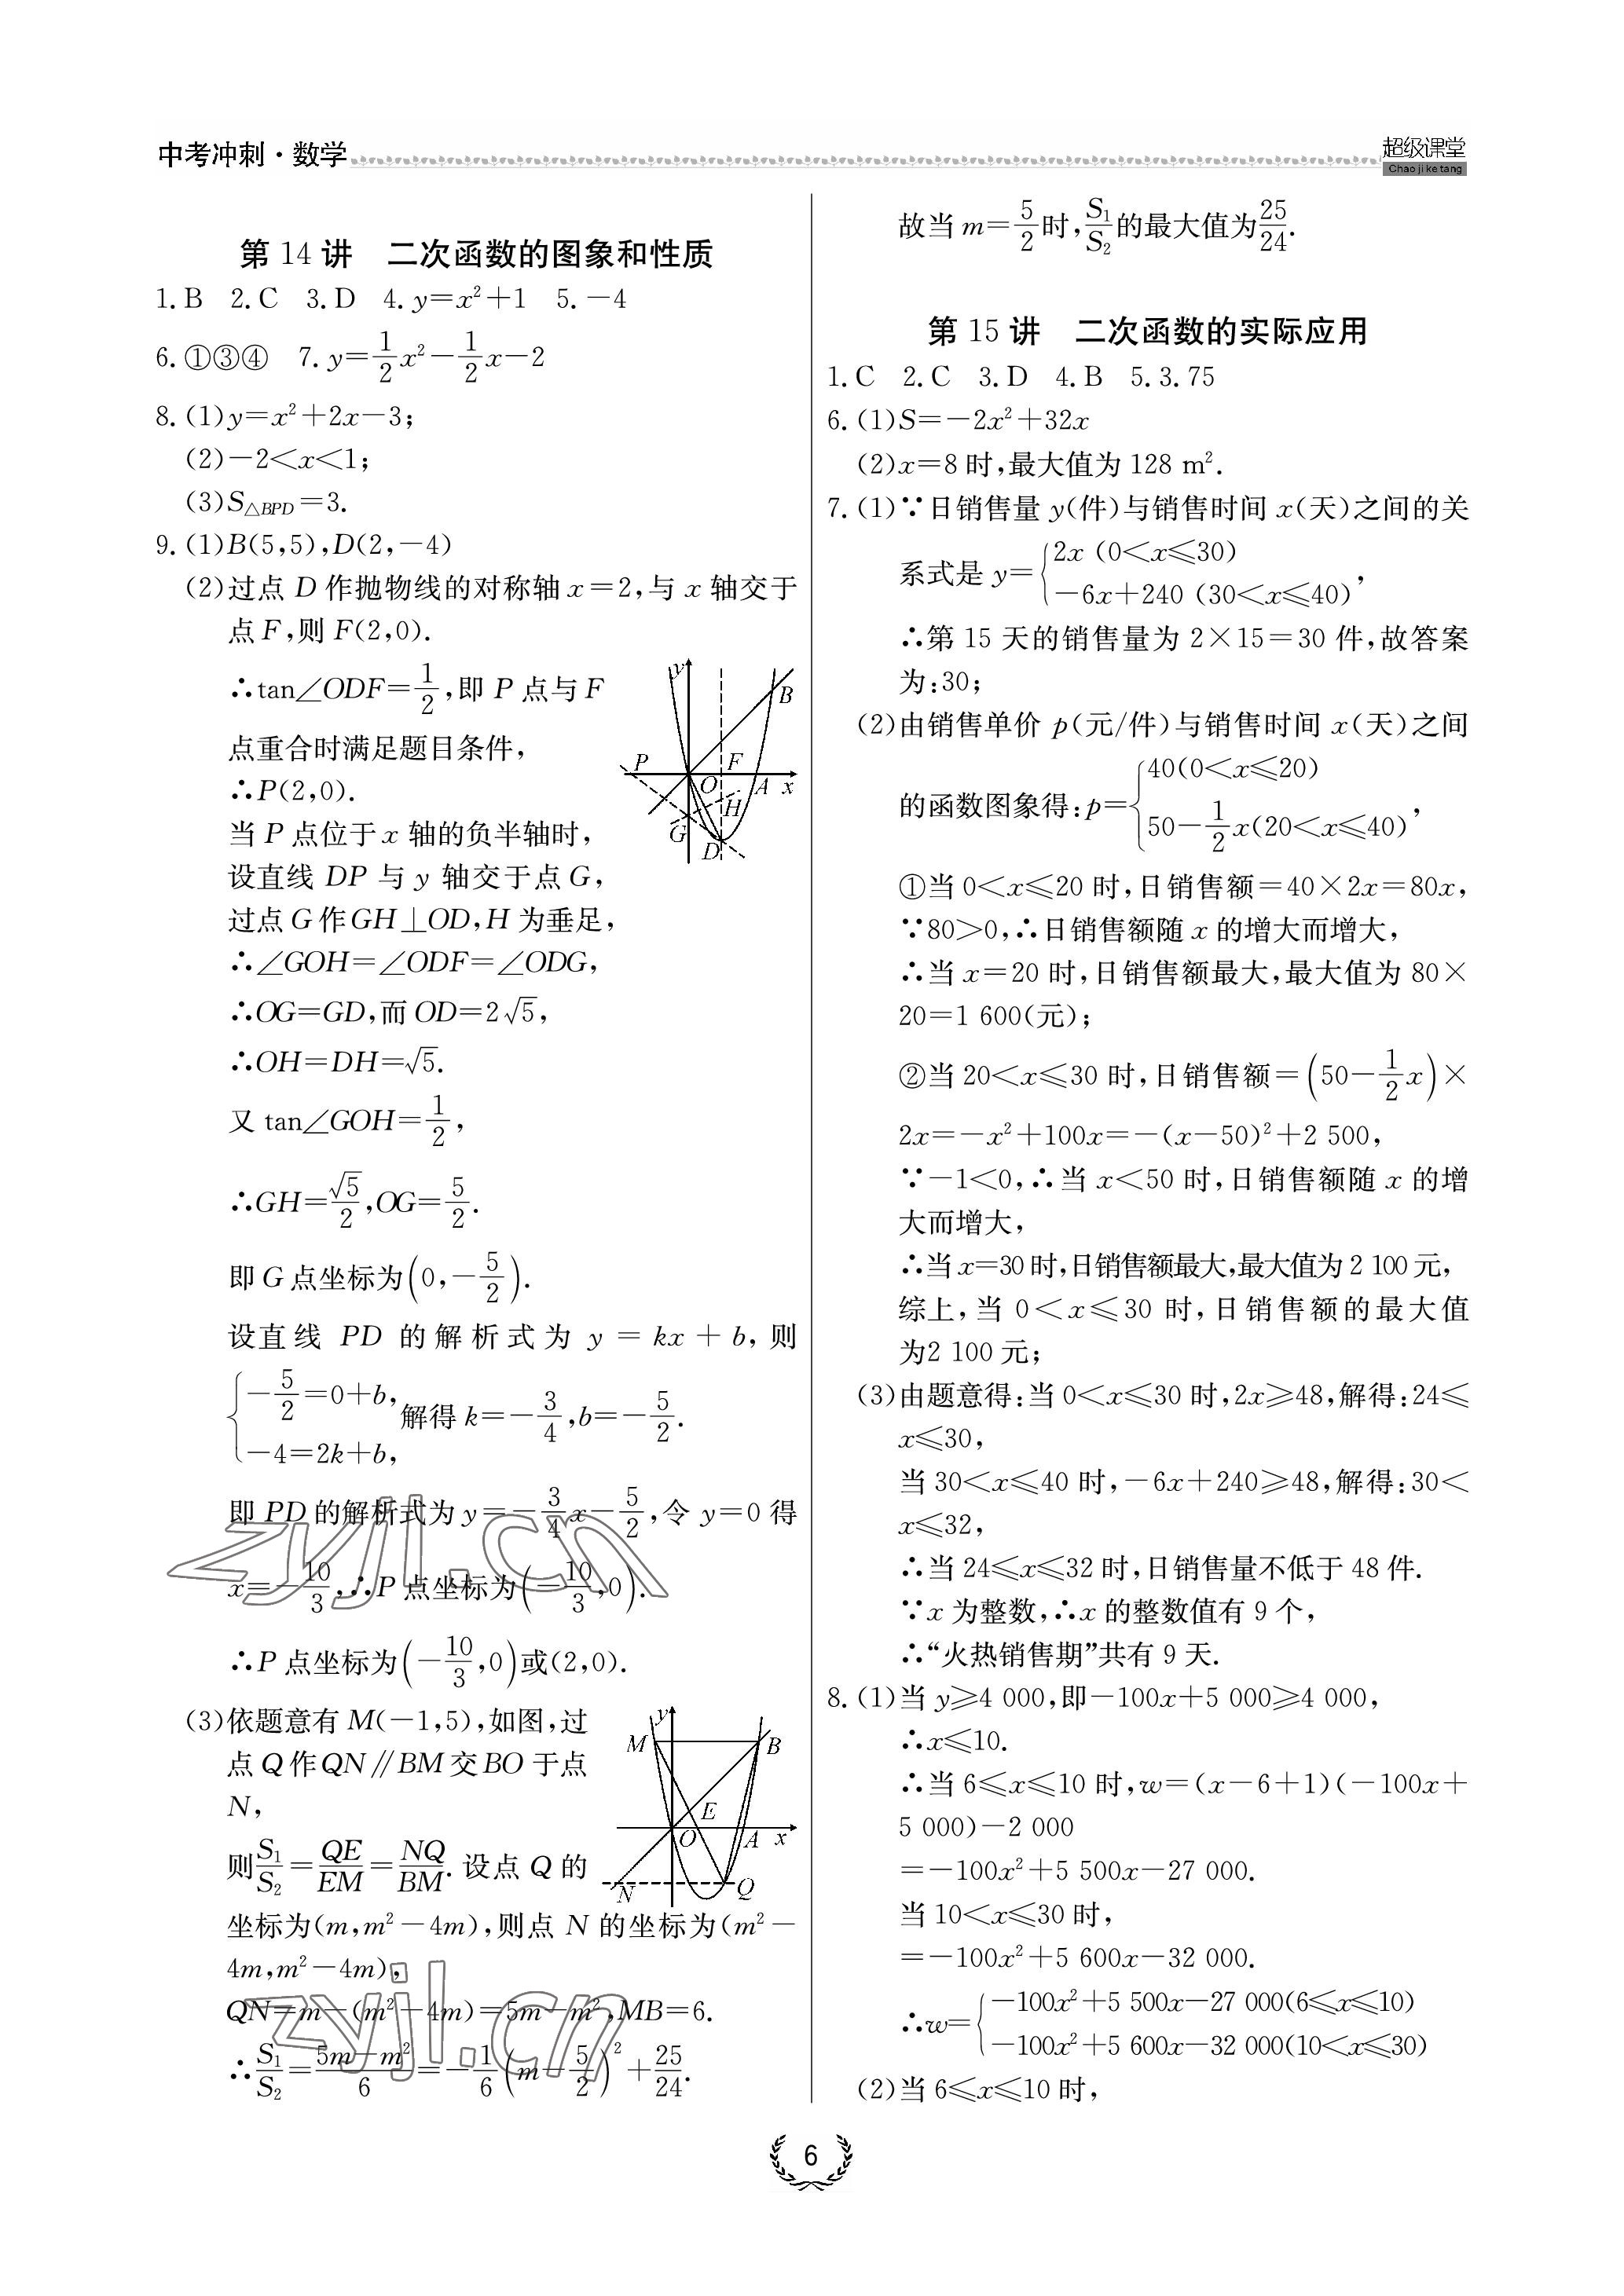 中考冲刺·数学
超级课堂
Chao ji ke tang
第 14 讲　二次函数的图象和性质
1. B　2. C　3. D　4. y=x²+1　5. −4
6. ①③④　7. y=1/2x²−1/2x−2
8. (1)y=x²+2x−3;
(2)−2<x<1;
(3)S△BPD=3.
9. (1)B(5,5),D(2,−4)
(2)过点 D 作抛物线的对称轴 x=2,与 x 轴交于
点 F,则 F(2,0).
∴tan∠ODF=1/2,即 P 点与 F
点重合时满足题目条件,
∴P(2,0).
当 P 点位于 x 轴的负半轴时,
设直线 DP 与 y 轴交于点 G,
过点 G 作 GH⊥OD,H 为垂足,
∴∠GOH=∠ODF=∠ODG,
∴OG=GD,而 OD=2√5,
∴OH=DH=√5.
又 tan∠GOH=1/2,
∴GH=√5/2,OG=5/2.
即 G 点坐标为(0,−5/2).
设直线 PD 的解析式为 y=kx+b,则
{−5/2=0+b, −4=2k+b, 解得 k=−3/4,b=−5/2.
即 PD 的解析式为 y=−3/4x−5/2,令 y=0 得
x=−10/3,∴P 点坐标为(−10/3,0).
∴P 点坐标为(−10/3,0)或(2,0).
y
B
P
F
O
A
x
H
G
D
(3)依题意有 M(−1,5),如图,过
点 Q 作 QN∥BM 交 BO 于点
N,
则S₁/S₂=QE/EM=NQ/BM. 设点 Q 的
坐标为(m,m²−4m),则点 N 的坐标为(m²−
4m,m²−4m),
QN=m−(m²−4m)=5m−m²,MB=6.
∴S₁/S₂=(5m−m²)/6=−1/6(m−5/2)²+25/24.
y
M
B
E
O
A
x
N
Q
zyjl.cn
zyjl.cn
故当 m=5/2时,S₁/S₂的最大值为25/24.
第 15 讲　二次函数的实际应用
1. C　2. C　3. D　4. B　5. 3.75
6. (1)S=−2x²+32x
(2)x=8 时,最大值为 128 m².
7. (1)∵日销售量 y(件)与销售时间 x(天)之间的关
系式是 y={2x (0<x≤30) −6x+240 (30<x≤40),
∴第 15 天的销售量为 2×15=30 件,故答案
为:30;
(2)由销售单价 p(元/件)与销售时间 x(天)之间
的函数图象得:p={40(0<x≤20) 50−1/2x(20<x≤40),
①当 0<x≤20 时,日销售额=40×2x=80x,
∵80>0,∴日销售额随 x 的增大而增大,
∴当 x=20 时,日销售额最大,最大值为 80×
20=1 600(元);
②当 20<x≤30 时,日销售额=(50−1/2x)×
2x=−x²+100x=−(x−50)²+2 500,
∵−1<0,∴当 x<50 时,日销售额随 x 的增
大而增大,
∴当 x=30 时,日销售额最大,最大值为 2 100 元,
综上,当 0<x≤30 时,日销售额的最大值
为2 100 元;
(3)由题意得:当 0<x≤30 时,2x≥48,解得:24≤
x≤30,
当 30<x≤40 时,−6x+240≥48,解得:30<
x≤32,
∴当 24≤x≤32 时,日销售量不低于 48 件.
∵x 为整数,∴x 的整数值有 9 个,
∴“火热销售期”共有 9 天.
8. (1)当 y≥4 000,即−100x+5 000≥4 000,
∴x≤10.
∴当 6≤x≤10 时,w=(x−6+1)(−100x+
5 000)−2 000
=−100x²+5 500x−27 000.
当 10<x≤30 时,
=−100x²+5 600x−32 000.
∴w={−100x²+5 500x−27 000(6≤x≤10) −100x²+5 600x−32 000(10<x≤30)
(2)当 6≤x≤10 时,
6